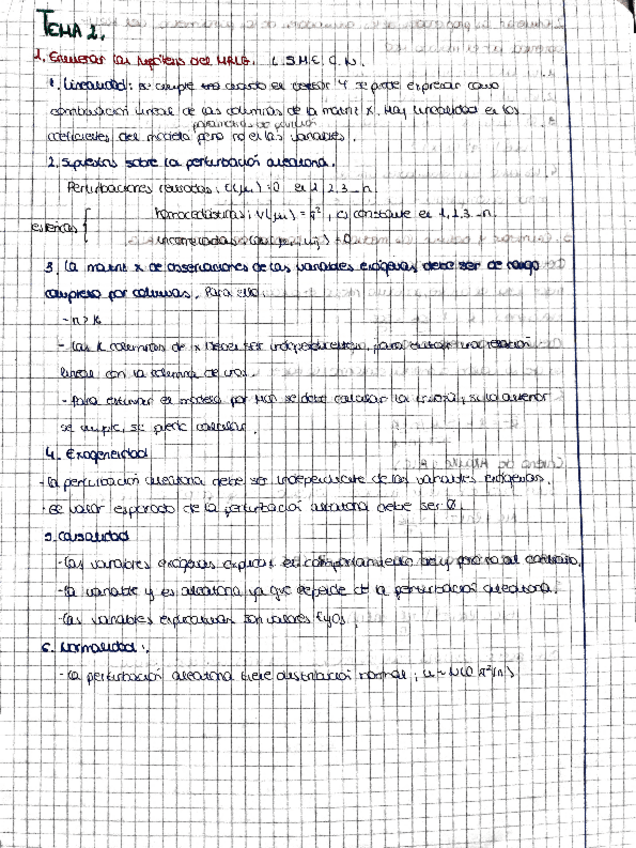 TEMA 2.
1. Enumerar las hipótesis del MRLG. L.S.M.E.C.N.
1. Linealidad: se cumple cuando el vector Y se puede expresar como
combinación lineal de las columnas de la matriz X. Hay linealidad en los
parámetros de posición
coeficientes del modelo pero no en las variables.
2. Supuestos sobre la perturbación aleatoria.
Perturbaciones centradas: E(μi)=0 i=1,2,3...n.
esféricas { homocedásticas: V(μi)=σ², es constante i=1,2,3...n.
incorrelacionadas: cov(μi, μj)=0
3. La matriz X de observaciones de las variables exógenas debe ser de rango
completo por columnas. Para ello:
- n > k
- Las k columnas de X deben ser independientes, para evitar una relación
lineal con la columna de unos.
- Para estimar el modelo por MCO se debe calcular la, si lo anterior
se cumple, se puede calcular.
4. Exogeneidad
- La perturbación aleatoria debe ser independiente de las variables exógenas.
- El valor esperado de la perturbación aleatoria debe ser 0.
5. Causalidad
- Las variables exógenas explican el comportamiento de y pero no al contrario.
- La variable y es aleatoria ya que depende de la perturbación aleatoria.
- Las variables explicativas son valores fijos.
6. Normalidad:
- La perturbación aleatoria tiene distribución normal; u ~ N(0, σ²In)